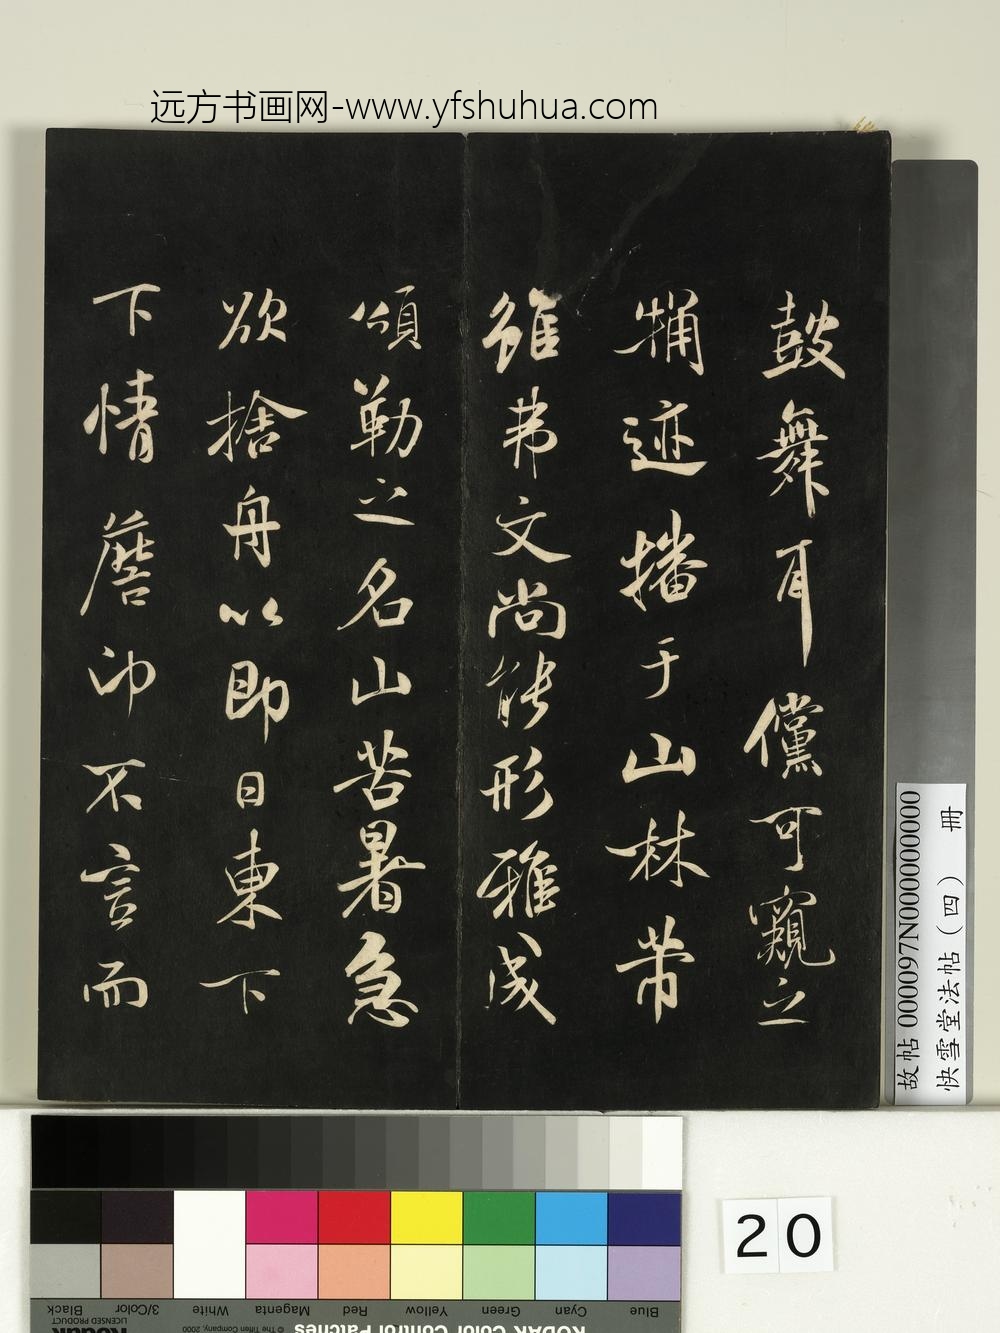 远方书画网-www.yfshuhua.com
鼓舞耳儻可窺之
牘迹播于山林帶
雖弗文尚能形雅
頌勒之名山苦暑急
欲捨舟以即日東下
下情 不言而
故帖 000097N000000000
快雪堂法帖（四） 冊
20
Blue Cyan Green Yellow Red Magenta White 3/Color Black
KODAK Color Control Patches
© The Tiffen Company, 2000
Kodak
LICENSED PRODUCT